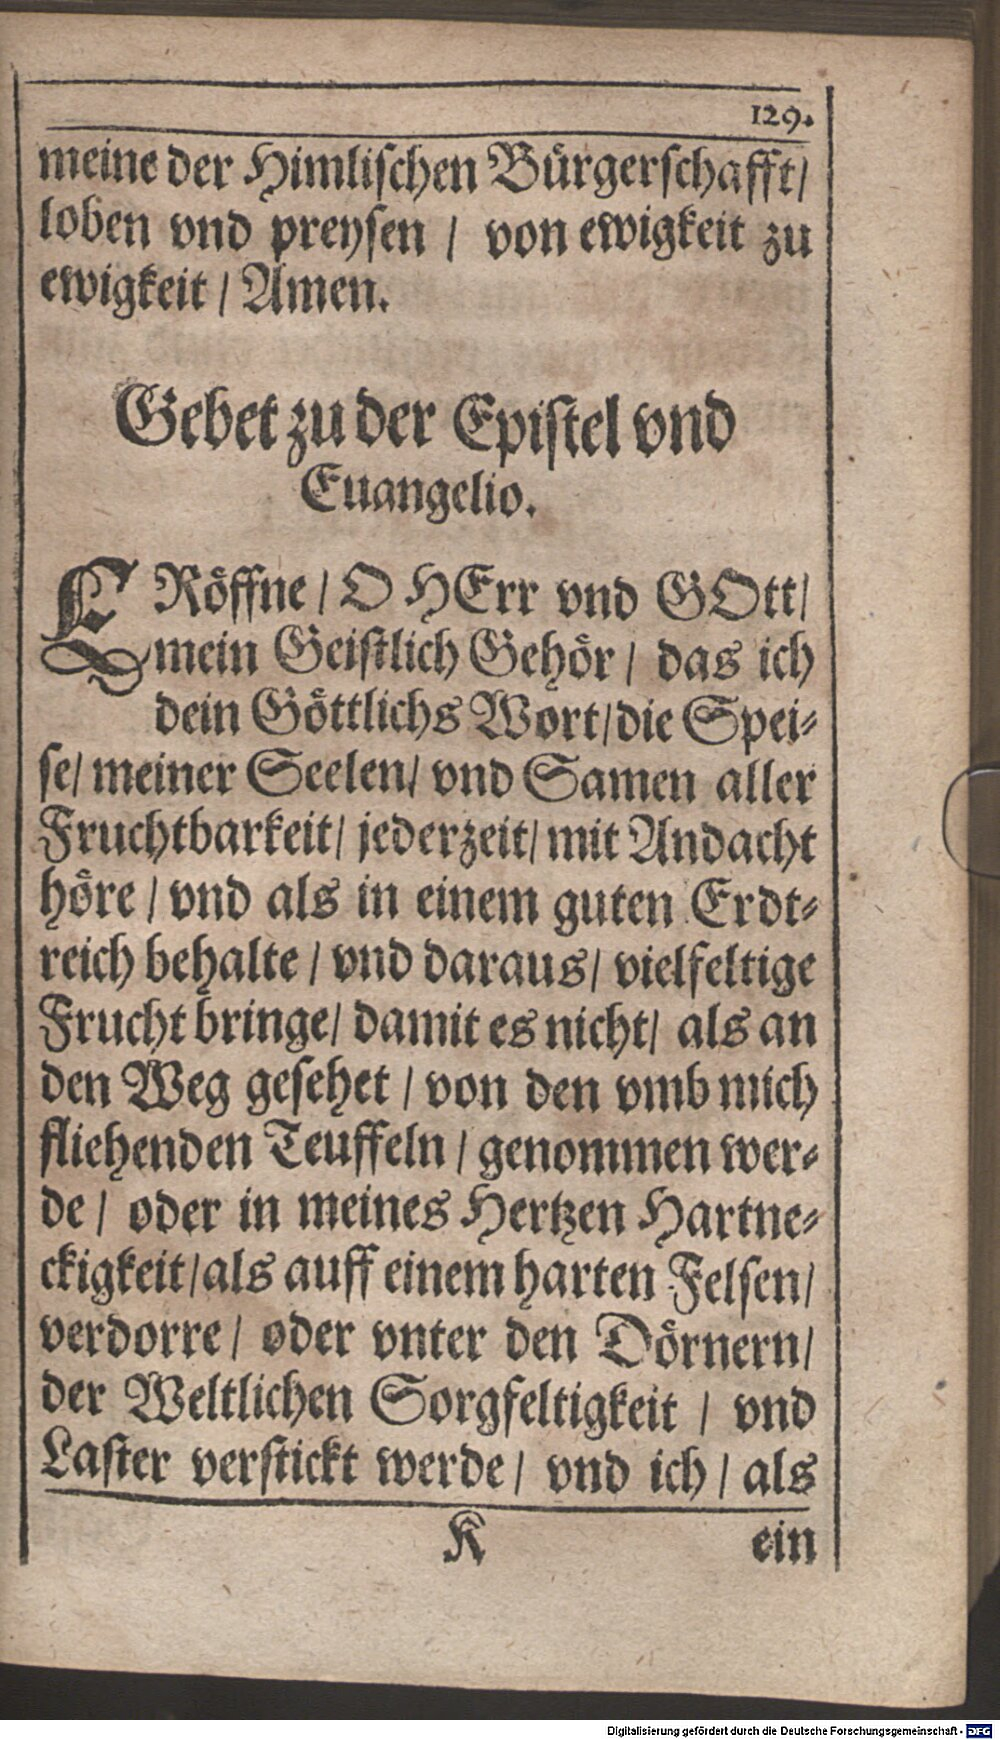 129.
meine der Himlischen Bürgerschafft/
loben vnd preysen / von ewigkeit zu
ewigkeit / Amen.
Gebet zu der Epistel vnd
Euangelio.
ERöffne / O HErr vnd GOtt/
mein Geistlich Gehör / das ich
dein Göttlichs Wort/die Spei-
se/ meiner Seelen/ vnd Samen aller
Fruchtbarkeit/ jederzeit/ mit Andacht
höre / vnd als in einem guten Erdt-
reich behalte / vnd daraus/ vielfeltige
Frucht bringe/ damit es nicht/ als an
den Weg gesehet / von den vmb mich
fliehenden Teuffeln / genommen wer-
de / oder in meines Hertzen Hartne-
ckigkeit/als auff einem harten Felsen/
verdorre / oder vnter den Dörnern/
der Weltlichen Sorgfeltigkeit / vnd
Laster verstickt werde / vnd ich / als
K ein
Digitalisierung gefördert durch die Deutsche Forschungsgemeinschaft - DFG